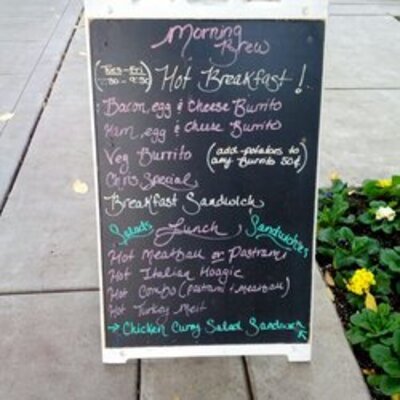 Morning
Brew
(Tues-Fri
:30 - 9:30)
Hot Breakfast!
Bacon, egg & Cheese Burrito
Ham, egg & Cheese Burrito
Veg Burrito
(add potatoes to
any Burrito 50¢)
Chris Special
Breakfast Sandwich
Salads Lunch Sandwiches
Hot Meatball or Pastrami
Hot Italian Hoagie
Hot Combo (Pastrami + Meatball)
Hot Turkey Melt
→ Chicken Curry Salad Sandwich